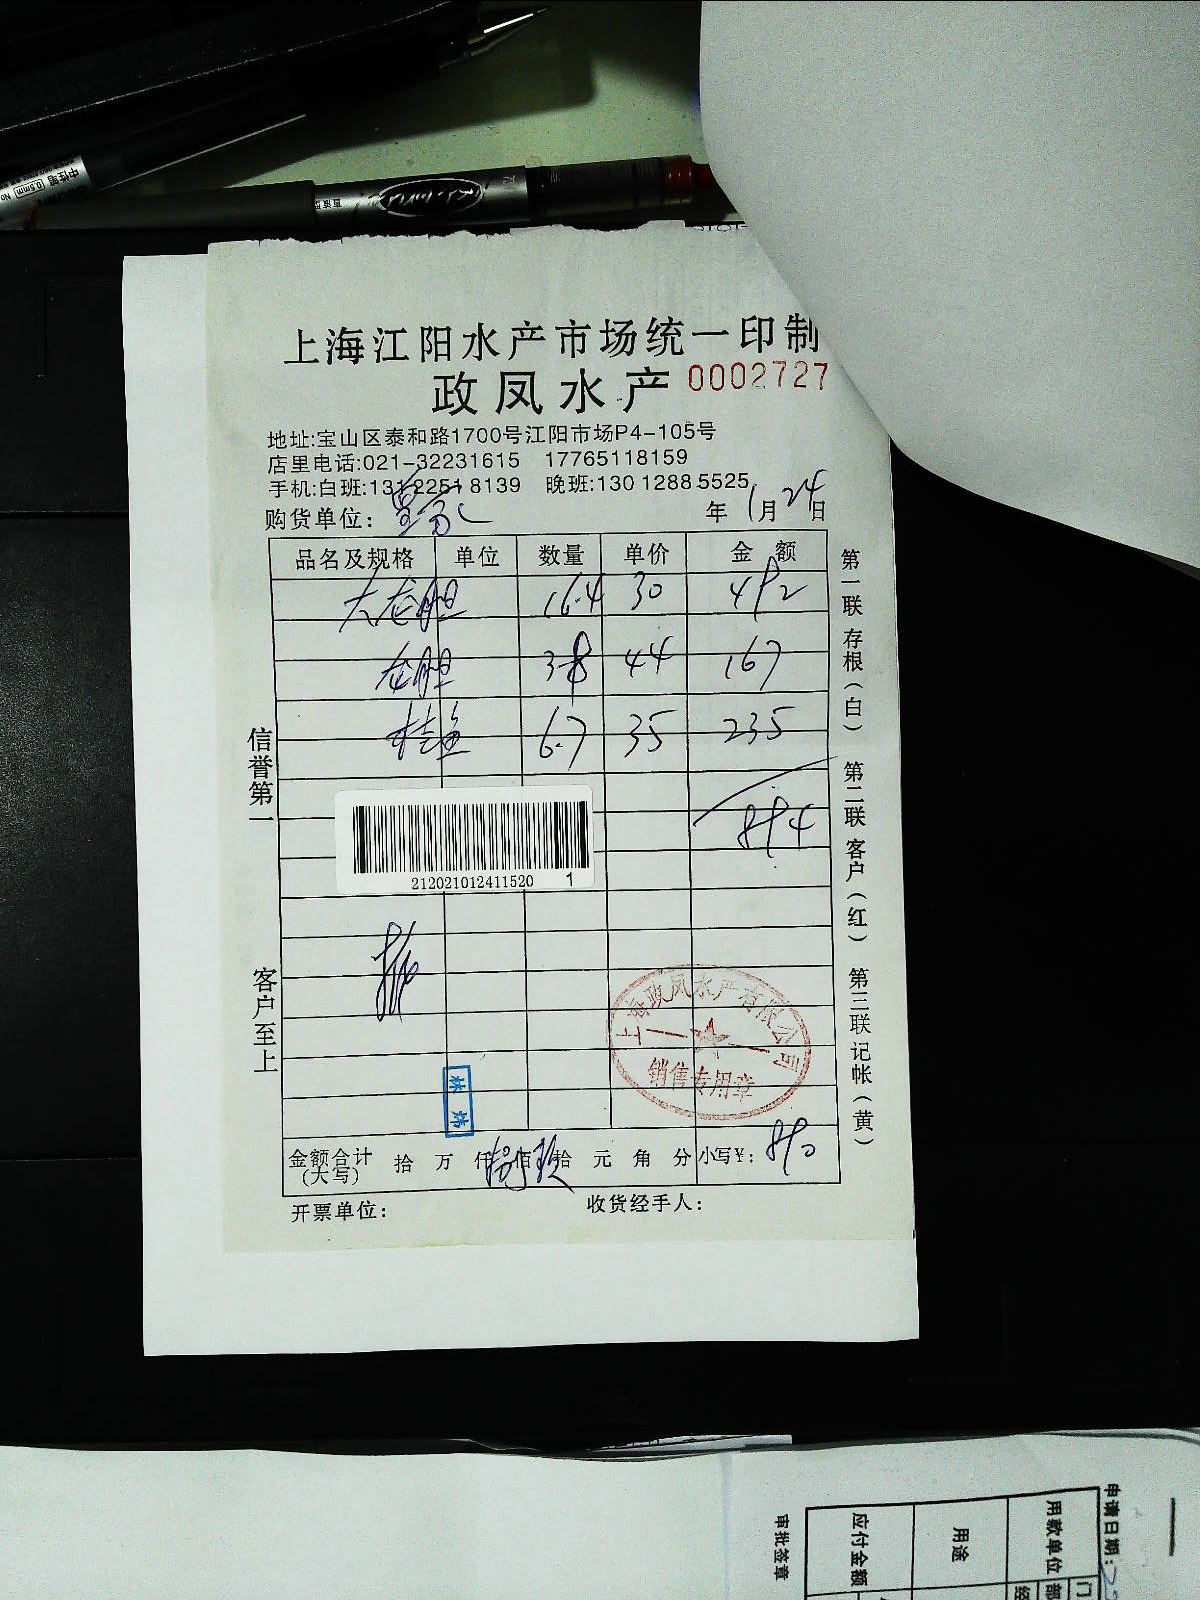 中性笔 0.5mm No
上海江阳水产市场统一印制
政凤水产 0002727
地址:宝山区泰和路1700号江阳市场P4-105号
店里电话:021-32231615 17765118159
手机:白班:13122518139 晚班:13012885525
购货单位:
年 1月24日
品名及规格 单位 数量 单价 金额
大龙胆 16.4 30 492
龙胆 3.8 44 167
桂鱼 6.7 35 235
894
212021012411520 1
信誉第一
客户至上
第一联存根(白)
第二联客户(红)
第三联记帐(黄)
上海政凤水产有限公司
销售专用章
金额合计(大写) 拾 万 仟 捌 佰 玖 拾 元 角 分 小写¥: 890
开票单位: 收货经手人:
申请日期:
用款单位
用途
应付金额
审批签章